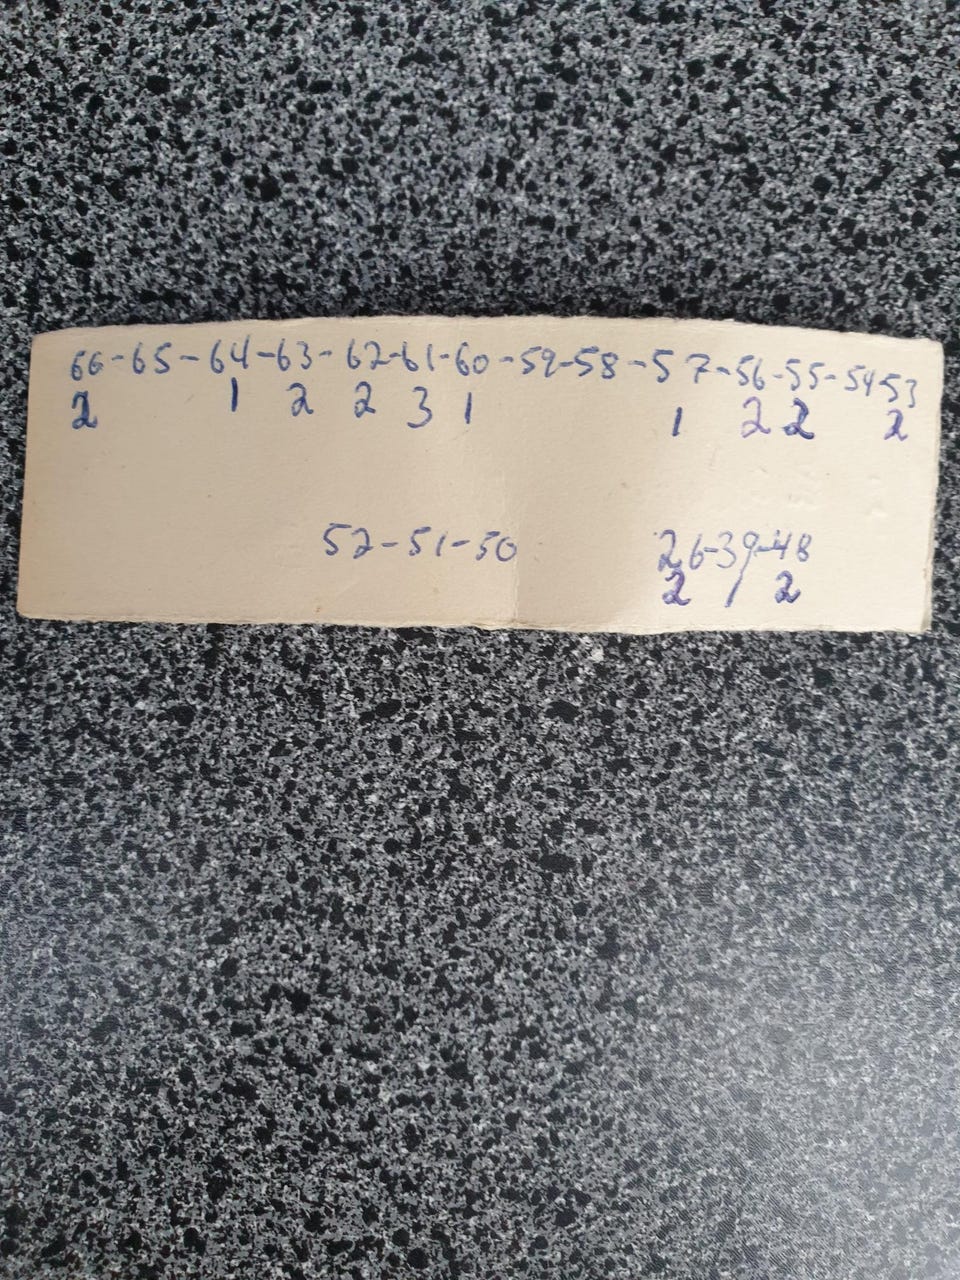 66-65-64-63-62-61-60-59-58-57-56-55-54-53
2 1 2 2 3 1 1 2 2 2
52-51-50 26-39-48
2 1 2